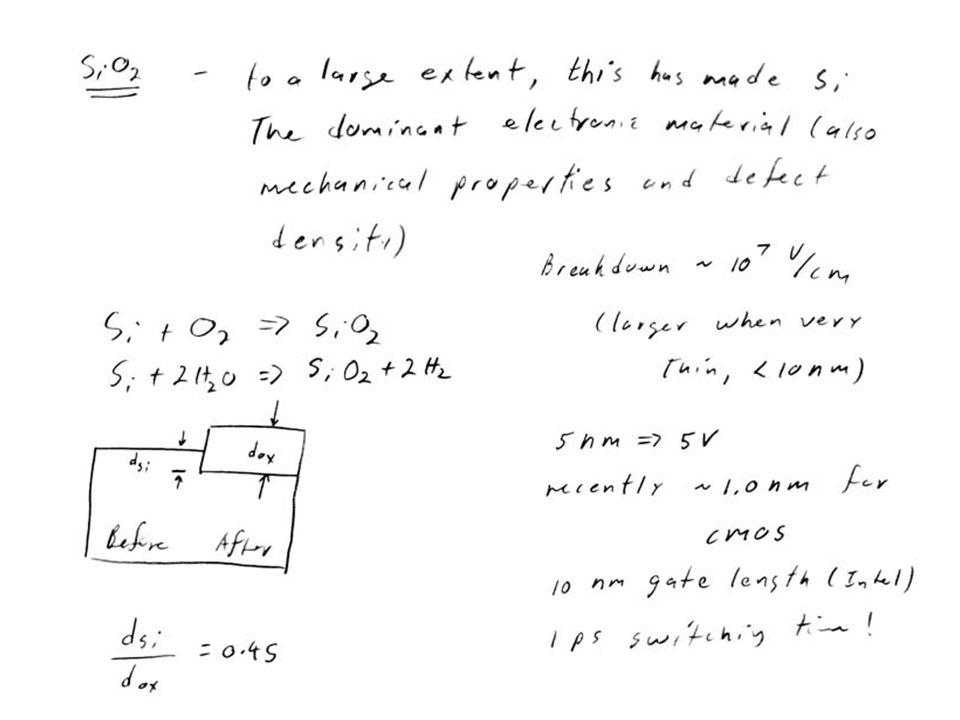 SiO2 - to a large extent, this has made Si
The dominant electronic material (also
mechanical properties and defect
density)
Breakdown ~ 10^7 V/cm
(larger when very
Thin, <10nm)
Si + O2 => SiO2
Si + 2H2O => SiO2 + 2H2
dsi
dox
Before After
dsi/dox = 0.45
5nm => 5V
recently ~1.0nm for
CMOS
10 nm gate length (Intel)
1 ps switching time!